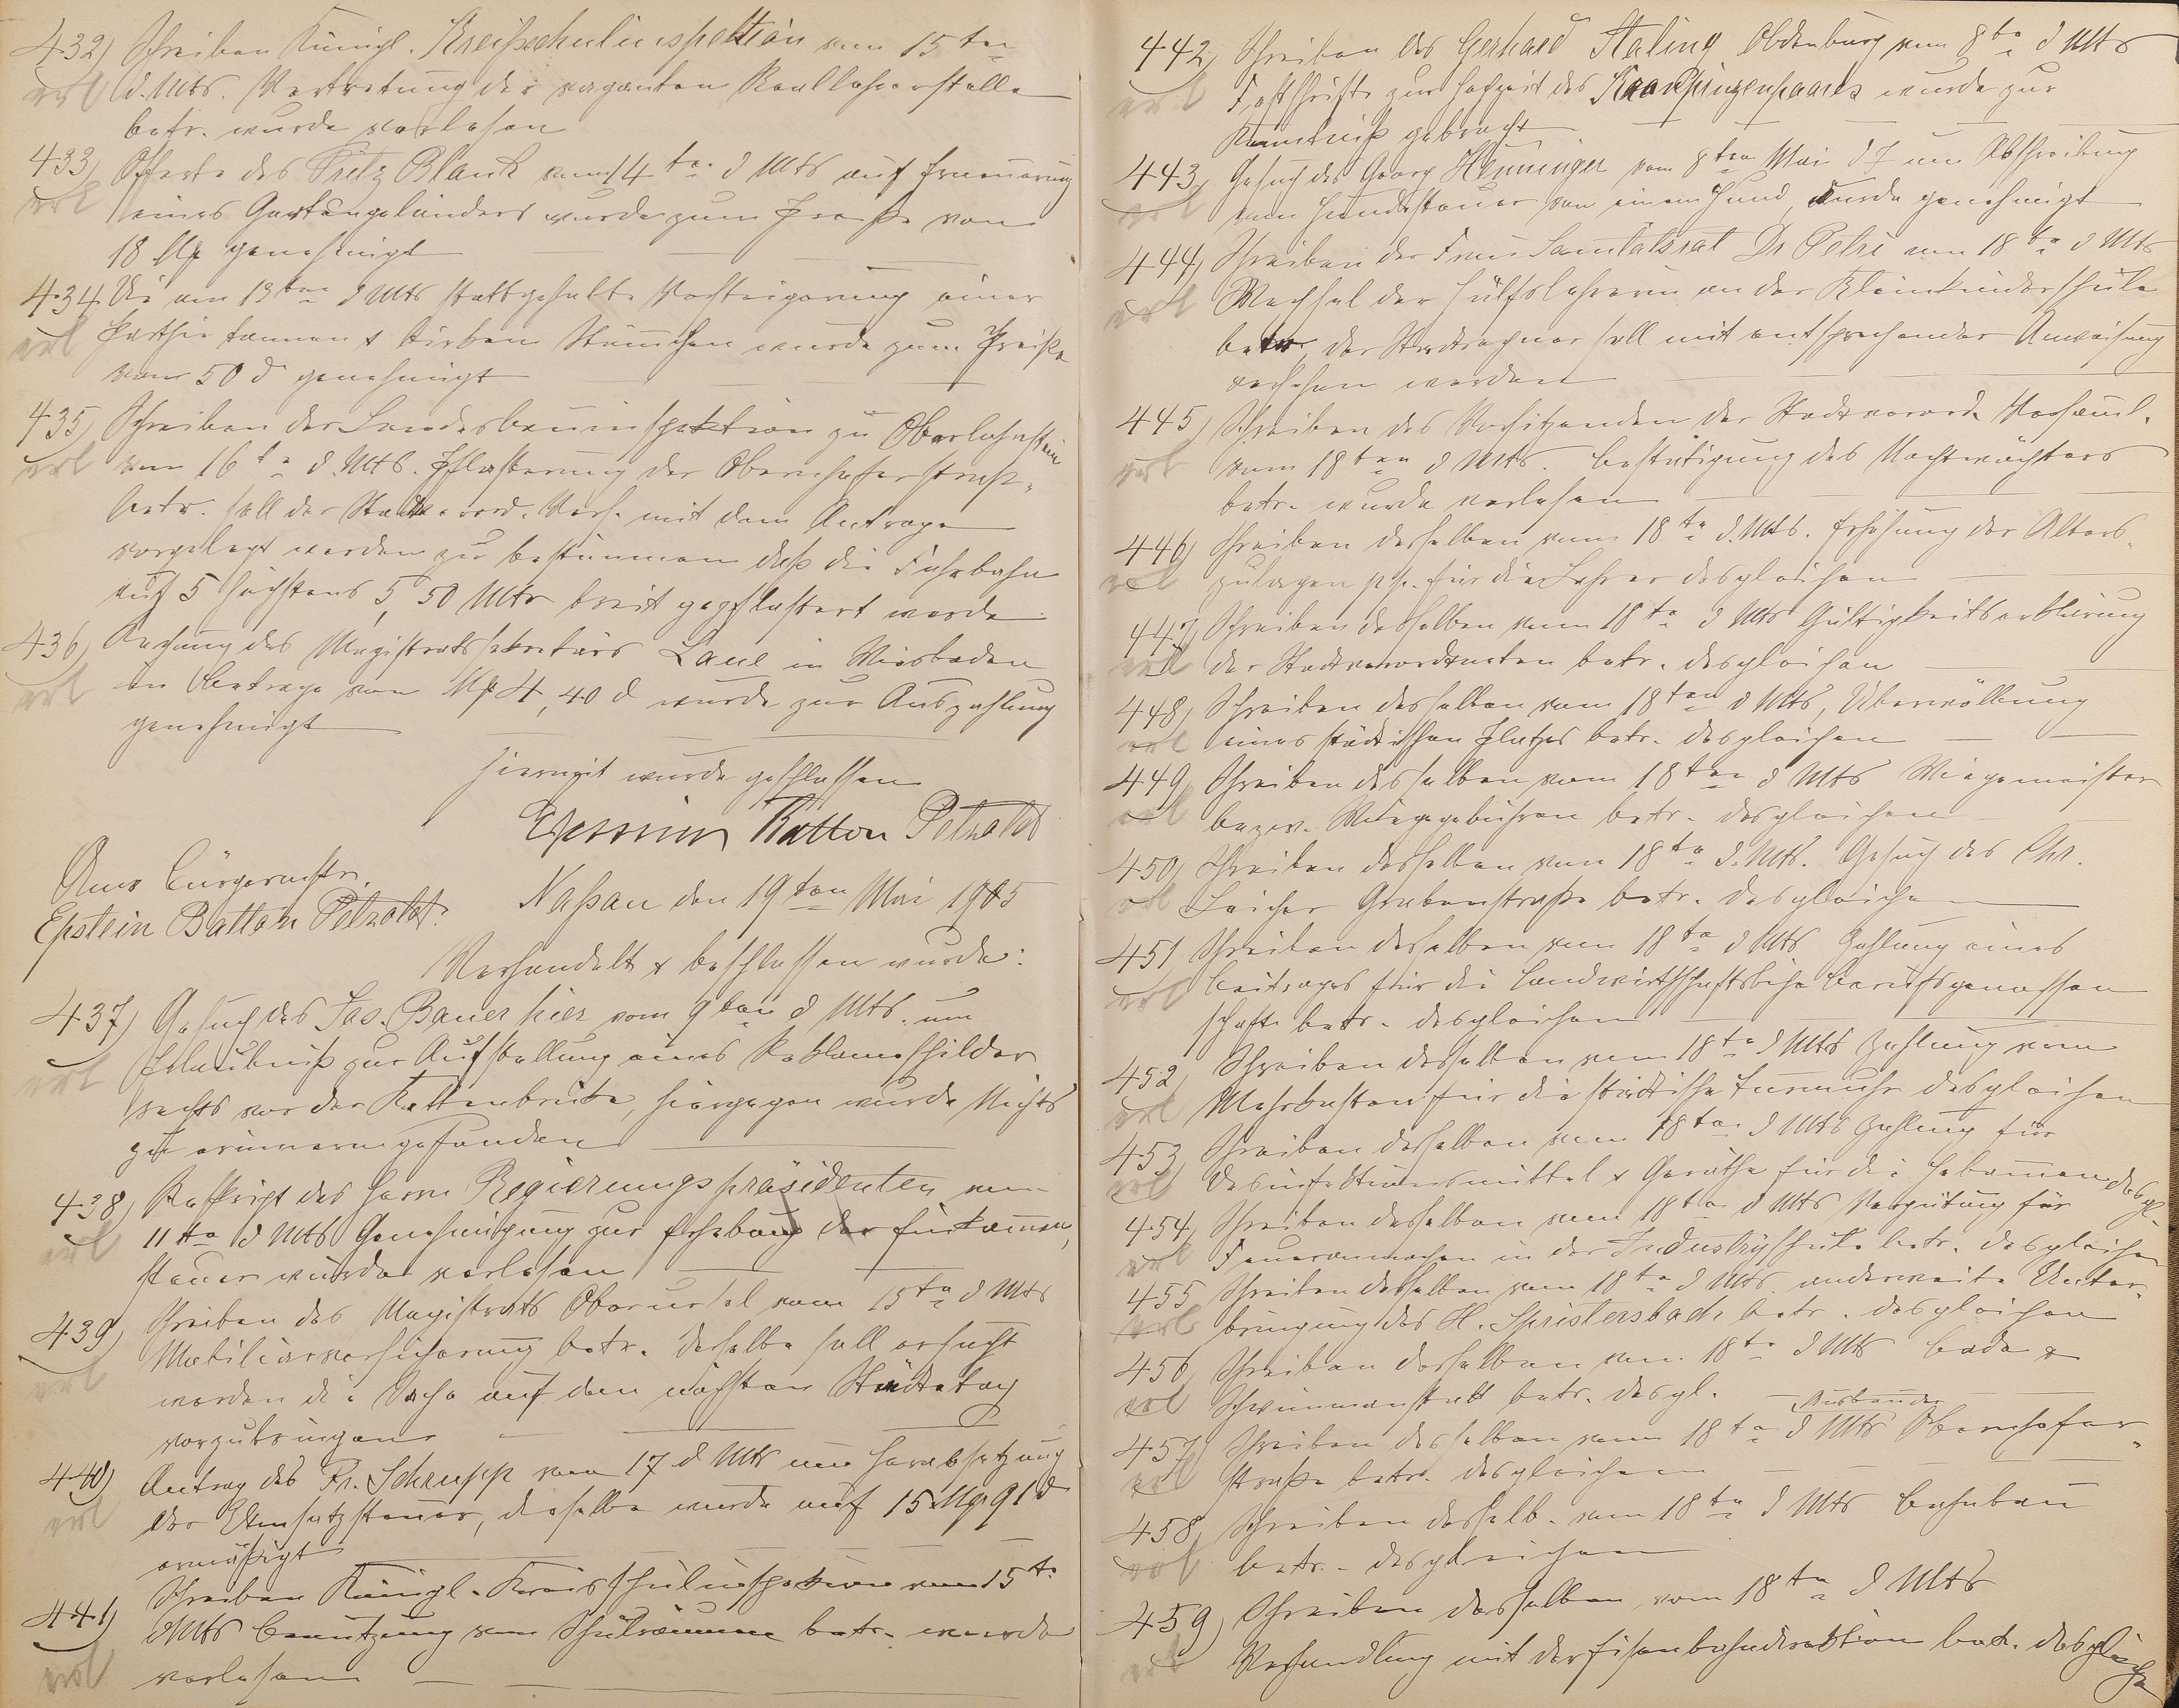 432) Schreiben Königl. Kreißschulinspektion vom 15ten
erl d. Mts. Vertretung der vaganten Reallehrerstelle
betr. wurde verlesen
433) Offerte des Fritz Blank vom 14ten d Mts auf Erneuerung
erl eines Gartengeländers wurde zum Preiße von
18 Mk genehmigt
434 Die am 13ten d Mts stattgehabte Versteigerung einer
erl Parthie tannen & birken Stämmchen wurde zum Preiße
von 50 d genehmigt
435) Schreiben der Landesbauinspektion zu Oberlahnstein
erl vom 16ten d. Mts. Pflasterung der Obernhoferstraße
betr. soll der Stadtverord. Vers. mit dem Antrage
vorgelegt werden zu bestimmen daß die Fahrbahn
auf 5 höchstens 5,50 Mtr breit gepflastert werde
436) Rechnung des Magistratssekretärs Laue in Wiesbaden
erl im Betrage von Mk 4,40 d wurde zur Auszahlung
genehmigt
Hiermit wurde geschlossen
Epstein Batton Petzold
Anw Bürgermstr.
Epstein Batton Petzold.
Naßau den 19ten Mai 1905
Verhandelt & beschlossen wurde:
437) Gesuch des Jos. Bauer hier vom 9ten d Mts. um
erl Erlaubniß zur Aufstellung eines Reklameschildes
rechts vor der Kettenbrücke, hiergegen wurde Nichts
zu erinnern gefunden
438) Rescript des Herrn Regierungspräsidenten vom
erl 11ten d Mts Genehmigung zur Erhebung der Einkommen,
steuer wurde verlesen
439) Schreiben des Magistrats Oberursel vom 15ten d Mts
erl Mobiliarversicherung betr. derselbe soll ersucht
werden die Sache auf dem nächsten Städtetag
vorzubringen
440) Antrag des Fr. Schrupp vom 17 d Mts um Herabsetzung
erl der Umsatzsteuer, dieselbe wurde auf 15 Mk 91 d
ermäßigt
441) Schreiben Königl. Kreisschulinspektion vom 15ten
erl d Mts Benützung von Schulräumen betr. wurde
verlesen
442) Schreiben des Gerhard Staling Oldenburg vom 8ten d Mts
erl Festschrift zur Hochzeit des Kronprinzenpaares wurde zur
Kenntniß gebracht
443) Gesuch des Georg Henninger vom 8ten Mai d J um Abschreibung
erl von Hundesteuer von einem Hund, wurde genehmigt
444) Schreiben der Frau Sanitätsrat Dr Petri vom 18ten d Mts
erl Wechsel der Hülfslehrerin an der Kleinkinderschule
betr, der Stadtrechner soll mit entsprechender Anweisung
versehen werden
445) Schreiben des Vorsitzenden der Stadtverord. Versaml.
erl vom 18ten d Mts. Bestätigung des Nachtwächters
betr. wurde verlesen
446) Schreiben desselben vom 18ten d. Mts. Erhöhung der Alters-
erl zulagen pp. für die Lehrer desgleichen
447) Schreiben desselben vom 18ten d Mts Gültigkeitserklärung
erl der Stadtverordneten betr. desgleichen
448) Schreiben desselben vom 18ten d Mts, Überwölbung
erl eines städtischen Platzes betr. desgleichen
449) Schreiben desselben vom 18ten d Mts Wiegemeister
erl bezw. Wiegegebühren betr. desgleichen
450) Schreiben desselben vom 18ten d. Mts. Gesuch des Chr.
erl Leicher Grabenstraße betr. desgleichen
451 Schreiben desselben vom 18ten d Mts Zahlung eines
erl Beitrages für die Landwirthschaftliche Berufsgenossen
schaft betr. desgleichen
452) Schreiben desselben vom 18ten d Mts Zahlung von
erl Mehrkosten für die städtische Turmuhr desgleichen
453) Schreiben desselben vom 18ten d Mts Zahlung für
erl Desinfektionsmittel & Geräthe für die Hebammen desgl.
454) Schreiben desselben vom 18ten d Mts Vergütung für
erl Feueranmachen in der Industrieschule betr. desgleichen
455 Schreiben desselben vom 18ten d Mts. anderweite Unter-
erl bringung des H. Spristersbach betr. desgleichen
456) Schreiben desselben vom 18ten d Mts Bade &
erl Schwimmanstalt betr. desgl.
Ausbau der
457) Schreiben desselben vom 18ten d Mts Obernhofer-
erl straße betr. desgleichen
458) Schreiben desselb. vom 18ten d Mts Bahnbau
erl betr. desgleichen
459) Schreiben desselben vom 18ten d Mts
erl Verhandlung mit der Eisenbahndirektion betr. desgleichen